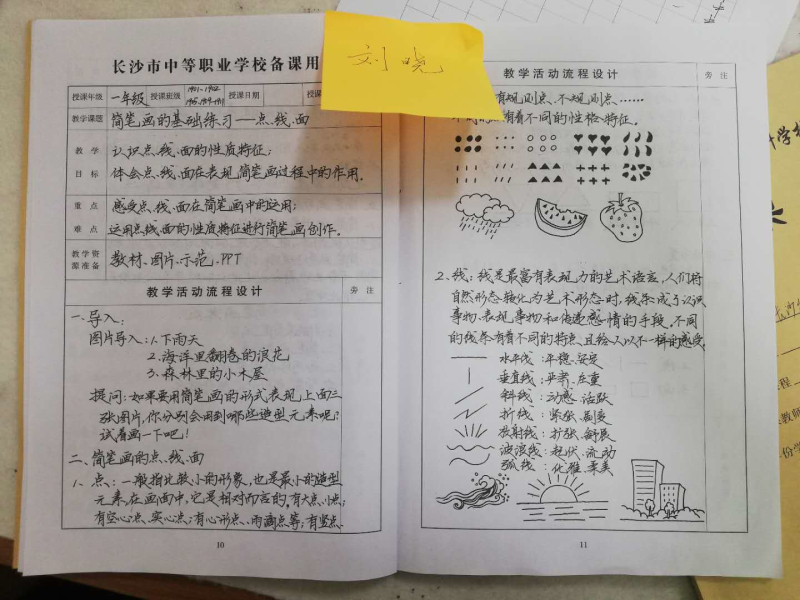 长沙市中等职业学校备课用
刘晓
授课年级 一年级 授课班级 授课日期
教学课题 简笔画的基础练习——点、线、面
教学 认识点、线、面的性质特征;
目标 体会点、线、面在表现简笔画过程中的作用.
重点 感受点、线、面在简笔画中的运用;
难点 运用点、线、面的性质特征进行简笔画创作。
教学资
源准备 教材、图片、示范、PPT
教学活动流程设计 旁注
一、导入:
图片导入:1.下雨天
2.海洋里翻卷的浪花
3.森林里的小木屋
提问:如果要用简笔画的形式表现上面三
张图片,你分别会用到哪些造型元素呢?
试着画一下吧!
二、简笔画的点、线、面
1、点:一般指比较小的形象,也是最小的造型
元素,在画面中,它是相对而言的,有大点、小点;
有空心点、实心点;有心形点、雨滴点等;有竖点
10
教学活动流程设计 旁注
有规则点、不规则点……
有着不同的性格特征。
2、线:线是最富有表现力的艺术语言,人们将
自然形态转化为艺术形态时,线条成了认识
事物、表现事物和传递感情的手段。不同
的线条有着不同的特点,且给人以不一样的感受
水平线:平稳、安定
垂直线:严肃、庄重
斜线:动感、活跃
折线:紧张、剧变
放射线:扩张、舒展
波浪线:起伏、流动
弧线:优雅、柔美
11